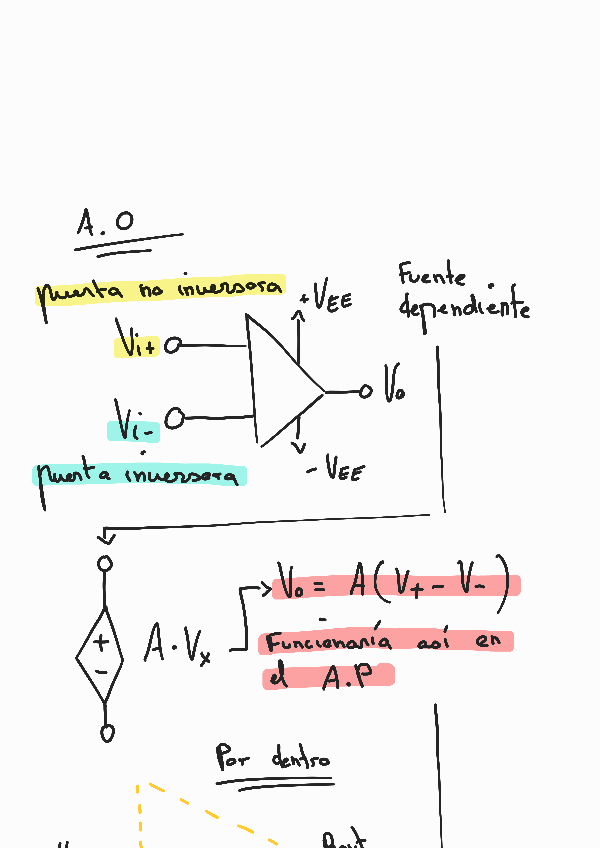 A.O
puerta no inversora
+VEE
Fuente
dependiente
Vi+
Vo
Vi-
puerta inversora
- VEE
Vo = A(V+ - V-)
+
-
A·Vx
Funcionaría así en
el A.P
Por dentro